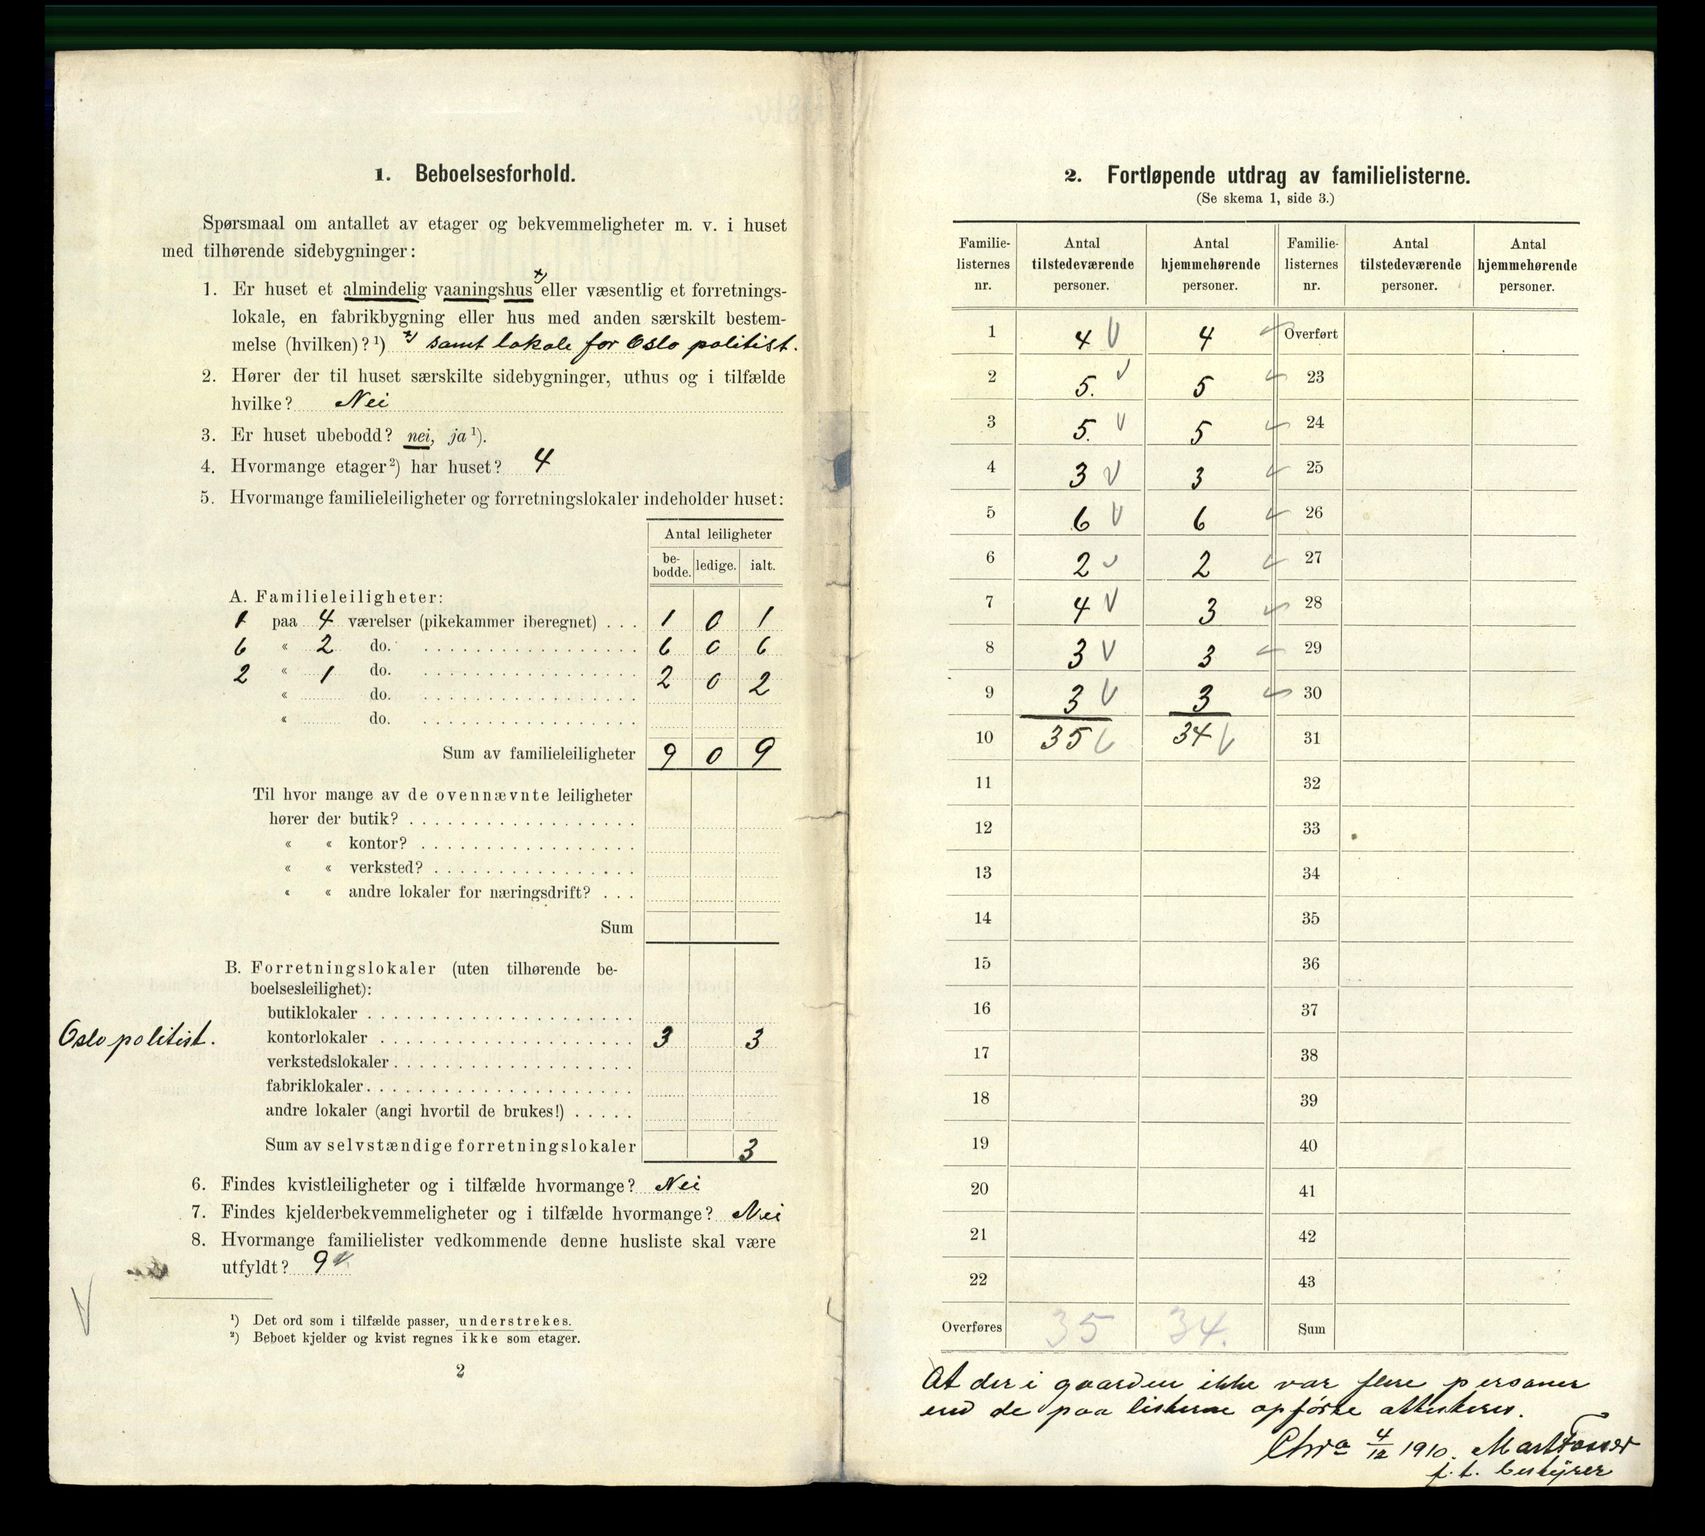 1. Beboelsesforhold.
Spørsmaal om antallet av etager og bekvemmeligheter m. v. i huset
med tilhørende sidebygninger:
1. Er huset et almindelig vaaningshus x) eller væsentlig et forretnings-
lokale, en fabrikbygning eller hus med anden særskilt bestem-
melse (hvilken)? ¹) x) samt lokale for Oslo politist.
2. Hører der til huset særskilte sidebygninger, uthus og i tilfælde
hvilke? Nei
3. Er huset ubebodd? nei, ja ¹).
4. Hvormange etager ²) har huset? 4
5. Hvormange familieleiligheter og forretningslokaler indeholder huset:
Antal leiligheter
be-
bodde. ledige. ialt.
A. Familieleiligheter:
1 paa 4 værelser (pikekammer iberegnet) . . . 1 0 1
6 « 2 do. 6 0 6
2 « 1 do. 2 0 2
« do.
« do.
Sum av familieleiligheter 9 0 9
Til hvor mange av de ovennævnte leiligheter
hører der butik?
« « kontor?
« « verksted?
« « andre lokaler for næringsdrift? . . .
Sum
B. Forretningslokaler (uten tilhørende be-
boelsesleilighet):
butiklokaler
Oslo politist. kontorlokaler 3 3
verkstedslokaler
fabriklokaler
andre lokaler (angi hvortil de brukes!) . . . . .
Sum av selvstændige forretningslokaler 3
6. Findes kvistleiligheter og i tilfælde hvormange? Nei
7. Findes kjelderbekvemmeligheter og i tilfælde hvormange? Nei
8. Hvormange familielister vedkommende denne husliste skal være
utfyldt? 9
¹) Det ord som i tilfælde passer, understrekes.
²) Beboet kjelder og kvist regnes ikke som etager.
2
2. Fortløpende utdrag av familielisterne.
(Se skema 1, side 3.)
Familie-
listernes
nr. Antal
tilstedeværende
personer. Antal
hjemmehørende
personer. Familie-
listernes
nr. Antal
tilstedeværende
personer. Antal
hjemmehørende
personer.
1 4 4 Overført
2 5. 5 23
3 5. 5 24
4 3 3 25
5 6 6 26
6 2 2 27
7 4 3 28
8 3 3 29
9 3 3 30
10 35 34 31
11 32
12 33
13 34
14 35
15 36
16 37
17 38
18 39
19 40
20 41
21 42
22 43
Overføres 35 34. Sum
At der i gaarden ikke var flere personer
end de paa listerne opførte attesteres.
Chra 4/12 1910.
f. t. bestyrer